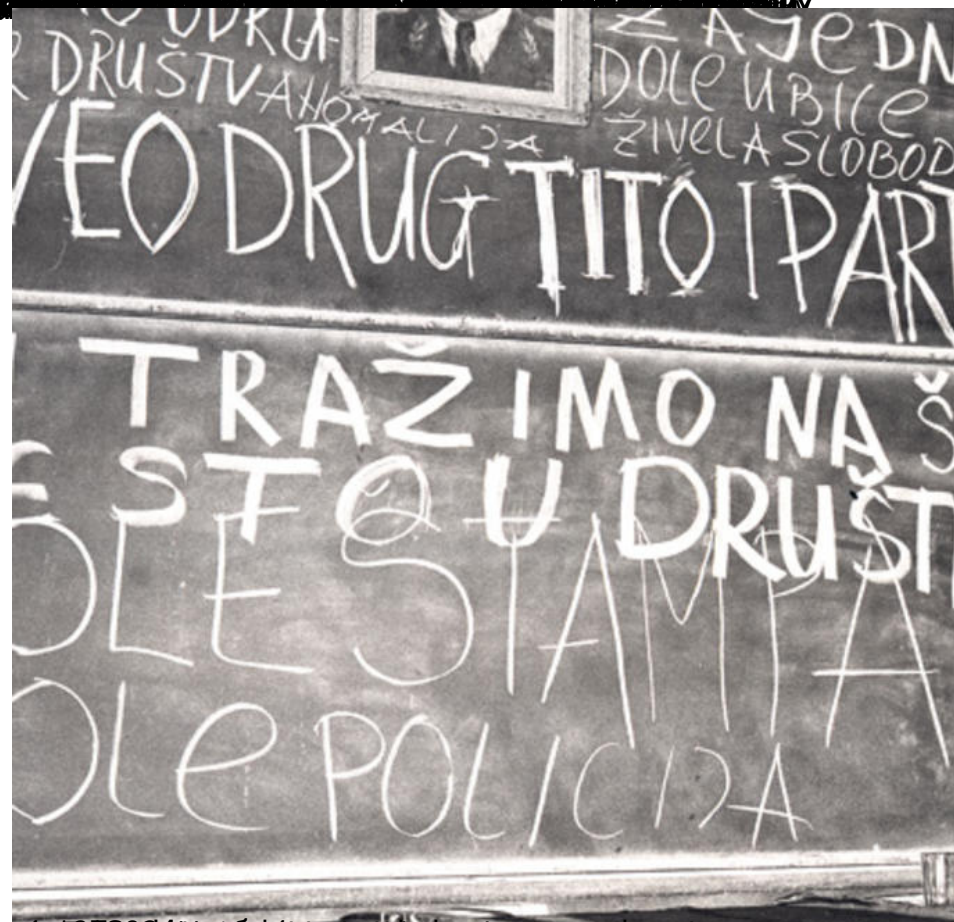 ZAJEDN
DRUŠTVA ANOMALIJA
DOLE UBICE
ŽIVELA SLOBOD
VEO DRUG TITO I PART
TRAŽIMO NAŠ
E STO U DRUŠT
OLE ŠTAMPA
OLE POLICIJA